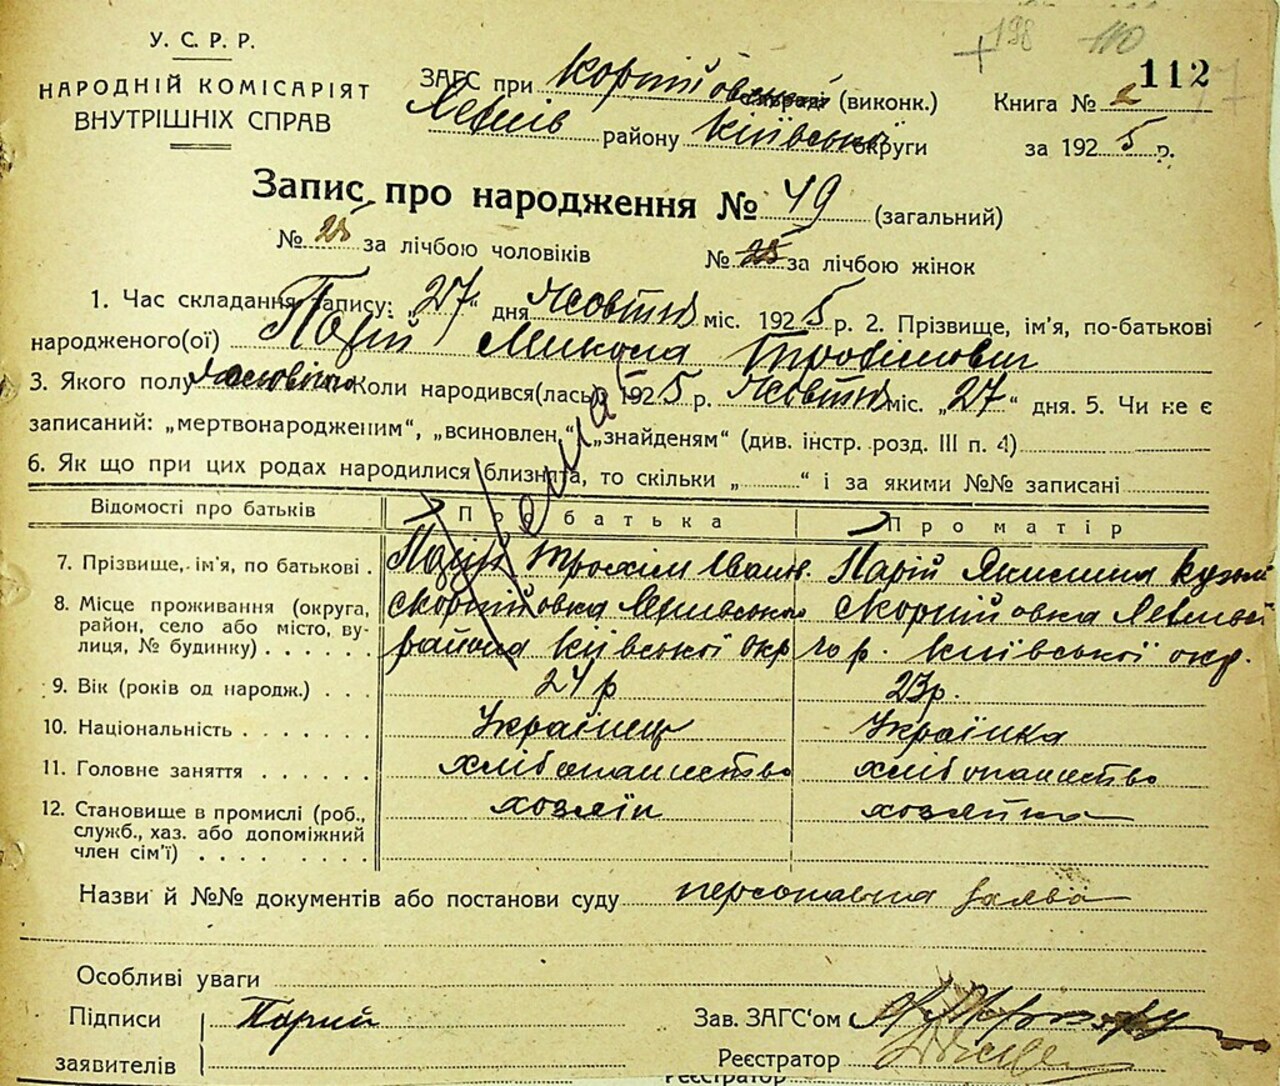 198 110
112
У. С. Р. Р.
НАРОДНІЙ КОМІСАРІЯТ
ВНУТРІШНІХ СПРАВ
ЗАГС при (виконк.)
району Київської округи
Книга № 2
за 1925 р.
Запис про народження № 49 (загальний)
№ 25 за лічбою чоловіків
№ 25 за лічбою жінок
1. Час складання запису: „27“ дня Жовтня міс. 1925 р. 2. Прізвище, ім'я, по-батькові
народженого(ої) Парій Микола Трохимович
3. Якого полу Коли народився(лась) 1925 р. Жовтня міс. „27“ дня. 5. Чи не є
записаний: „мертвонародженим“, „всиновлен.“ „знайденям“ (див. інстр. розд. III п. 4)
6. Як що при цих родах народилися близнята, то скільки „ “ і за якими №№ записані
Відомості про батьків Про батька Про матір
7. Прізвище, ім'я, по батькові . Парій Трохим Іванн. Парій Якилина
8. Місце проживання (округа, район, село або місто, вулиця, № будинку) . . . . .
района Київської окр го р. Київської окр.
9. Вік (років од народж.) . . . 24 р 23 р.
10. Національність . . . . . . . Українець Українка
11. Головне заняття . . . . . . хлібопашество хлібопашество
12. Становище в промислі (роб., служб., хаз. або допоміжний член сім'ї) . . . . . . . хозяїн хозяйка
Назви й №№ документів або постанови суду персональна заява
Особливі уваги
Підписи Парий Зав. ЗАГС'ом
заявителів Реєстратор
Реєстратор